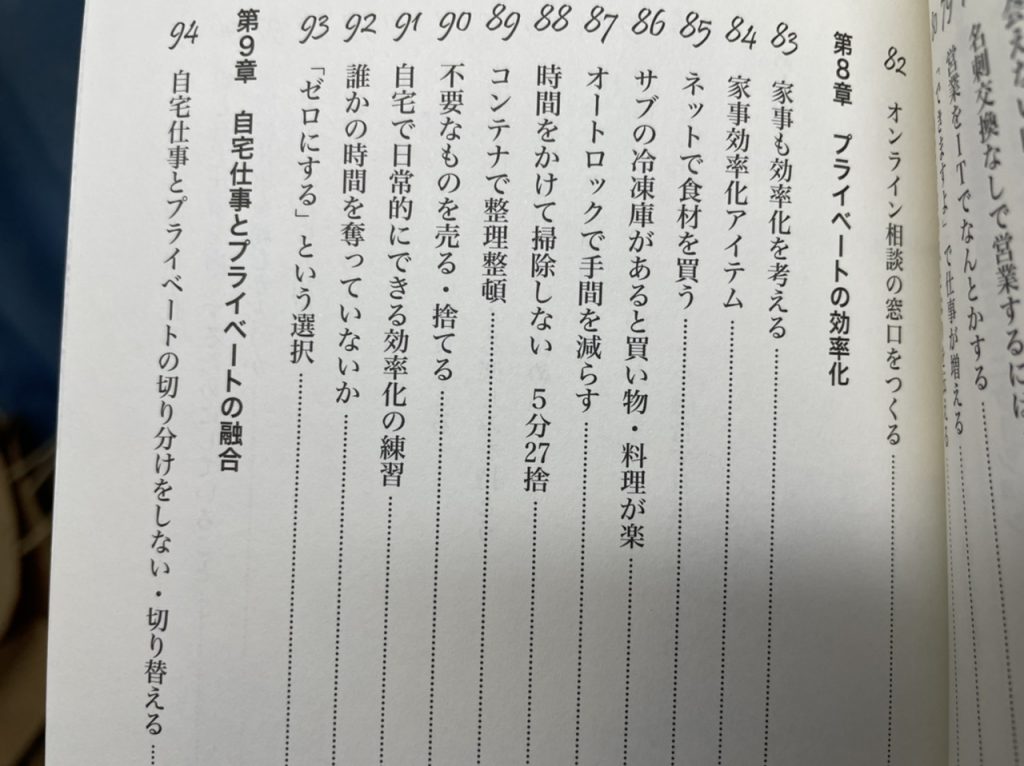 名刺交換なしで営業するには
営業をITでなんとかする
で仕事が増える
82 オンライン相談の窓口をつくる
第8章 プライベートの効率化
83 家事も効率化を考える
84 家事効率化アイテム
85 ネットで食材を買う
86 サブの冷凍庫があると買い物・料理が楽
87 オートロックで手間を減らす
88 時間をかけて掃除しない 5分27捨
89 コンテナで整理整頓
90 不要なものを売る・捨てる
91 自宅で日常的にできる効率化の練習
92 誰かの時間を奪っていないか
93 「ゼロにする」という選択
第9章 自宅仕事とプライベートの融合
94 自宅仕事とプライベートの切り分けをしない・切り替える